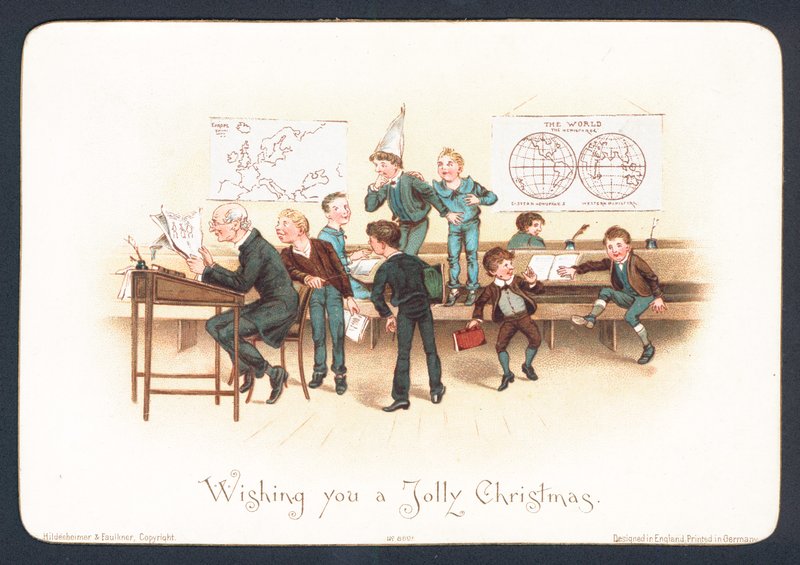 EUROPE
THE WORLD
THE HEMISFREE
WESTERN HEMISFERN.
Wishing you a Jolly Christmas.
Hildesheimer & Faulkner, Copyright.
Designed in England, Printed in Germany.